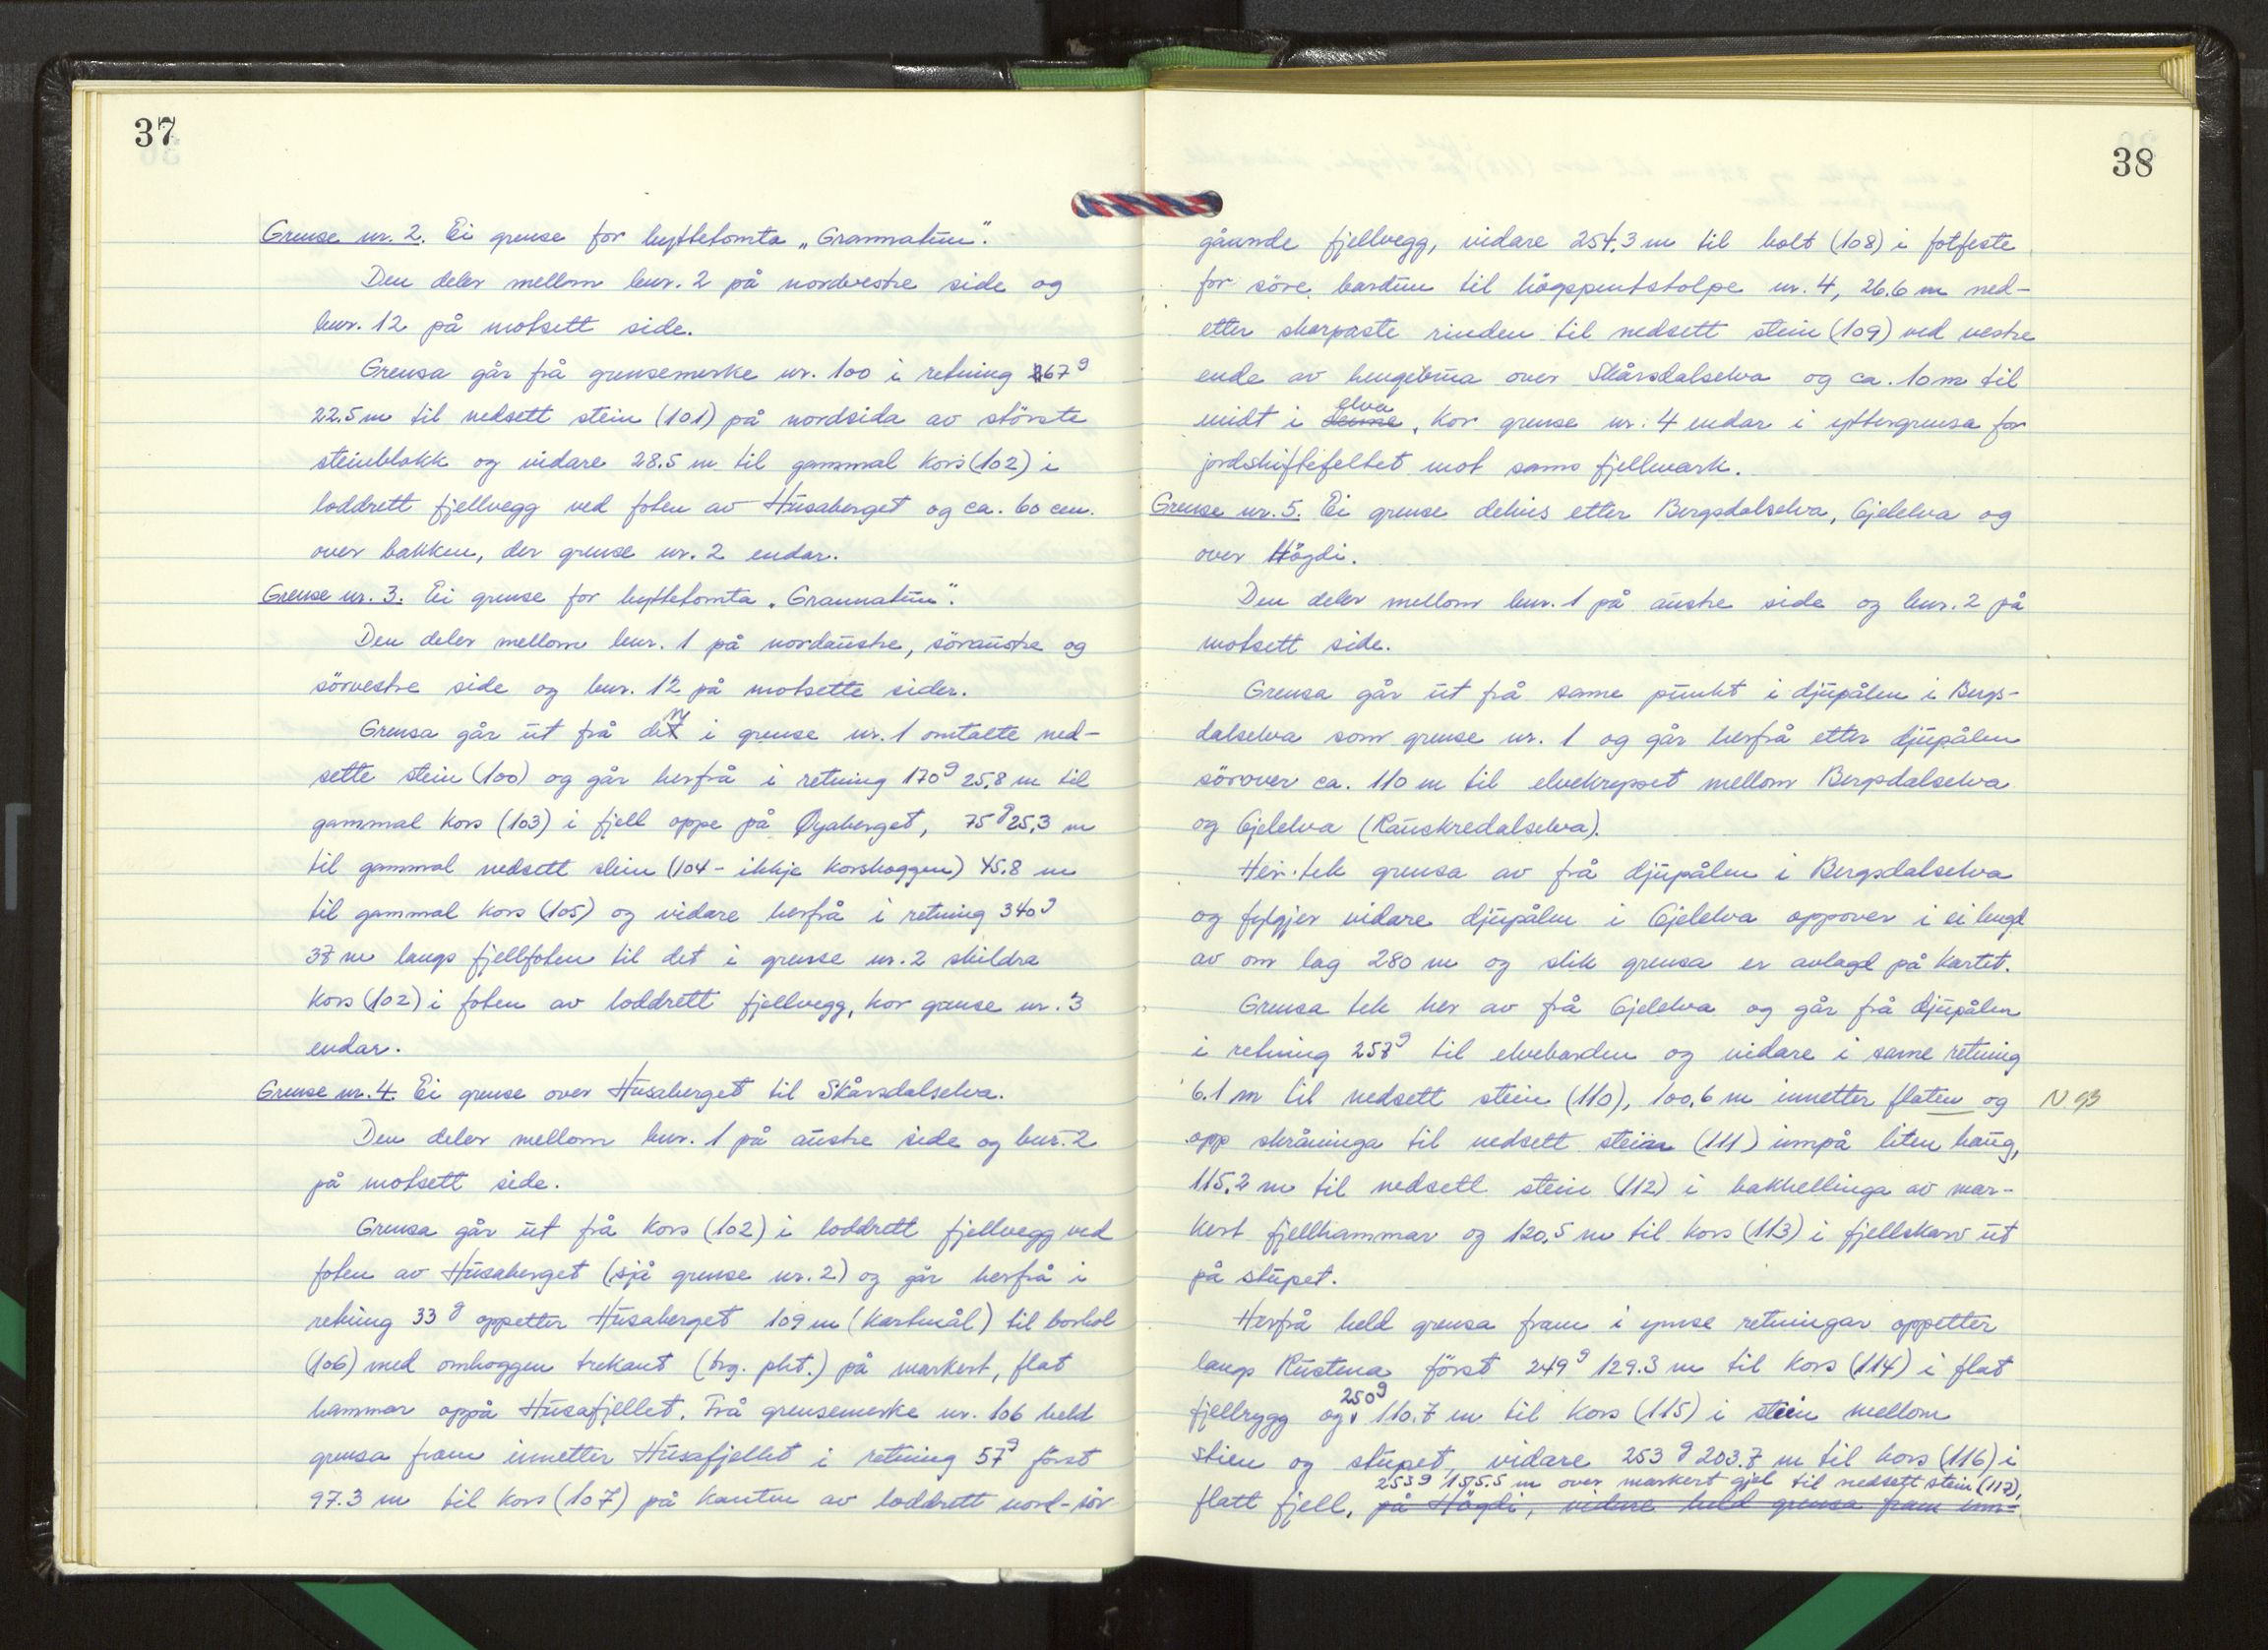 37
Grense nr. 2. Ei grense for hyttetomta „Grannatun".
Den deler mellom bnr. 2 på nordvestre side og
bnr. 12 på motsett side.
Grensa går frå grensemerke nr. 100 i retning 367g
22.5 m til nedsett stein (101) på nordsida av største
steinblokk og vidare 28.5 m til gammal kors (102) i
loddrett fjellvegg ved foten av Husaberget og ca. 60 cm.
over bakken, der grense nr. 2 endar.
Grense nr. 3. Ei grense for hyttetomta „Grannatun".
Den deler mellom bnr. 1 på nordaustre, søraustre og
sørvestre side og bnr. 12 på motsette sider.
Grensa går ut frå den i grense nr. 1 omtalte ned-
sette stein (100) og går herfrå i retning 170g 25,8 m til
gammal kors (103) i fjell oppe på Øyaberget, 75g 25,3 m
til gammal nedsett stein (104 - ikkje korshoggen) 45.8 m
til gammal kors (105) og vidare herfrå i retning 340g
37 m langs fjellfoten til det i grense nr. 2 skildra
kors (102) i foten av loddrett fjellvegg, kor grense nr. 3
endar.
Grense nr. 4. Ei grense over Husaberget til Skårsdalselva.
Den deler mellom bnr. 1 på austre side og bnr. 2
på motsett side.
Grensa går ut frå kors (102) i loddrett fjellvegg ved
foten av Husaberget (sjå grense nr. 2) og går herfrå i
retning 33g oppetter Husaberget 109 m (kartmål) til borhol
(106) med omhoggen trekant (trg. pkt.) på markert, flat
hammar oppå Husafjellet. Frå grensemerke nr. 106 held
grensa fram innetter Husafjellet i retning 57g først
97.3 m til kors (107) på kanten av loddrett nord-sør
38
gåande fjellvegg, vidare 254.3 m til bolt (108) i fotfeste
for søre bardun til høgspentstolpe nr. 4, 26.6 m ned-
etter skarpaste rinden til nedsett stein (109) ved vestre
ende av hengebrua over Skårsdalselva og ca. 10 m til
midt i denne elva, kor grense nr. 4 endar i yttergrensa for
jordskiftefeltet mot sams fjellmark.
Grense nr. 5. Ei grense delvis etter Bergsdalselva, Gjelelva og
over Høgdi.
Den deler mellom bnr. 1 på austre side og bnr. 2 på
motsett side.
Grensa går ut frå same punkt i djupålen i Bergs-
dalselva som grense nr. 1 og går herfrå etter djupålen
sørover ca. 110 m til elvekrysset mellom Bergsdalselva
og Gjelelva (Rauskredalselva).
Her tek grensa av frå djupålen i Bergsdalselva
og fylgjer vidare djupålen i Gjelelva oppover i ei lengd
av om lag 280 m og slik grensa er avlagd på kartet.
Grensa tek her av frå Gjelelva og går frå djupålen
i retning 257g til elvebarden og vidare i same retning
6.1 m til nedsett stein (110), 100,6 m innetter flaten og
opp skråninga til nedsett stein (111) innpå liten haug,
115,2 m til nedsett stein (112) i bakhellinga av mar-
kert fjellhammar og 120,5 m til kors (113) i fjellskarv ut
på stupet.
Herfrå held grensa fram i ymse retningar oppetter
langs Rustena først 249g 129.3 m til kors (114) i flat
fjellrygg og 250g 110.7 m til kors (115) i stein mellom
stien og stupet, vidare 253g 203.7 m til kors (116) i
253g 155.5 m over markert gjel til nedsett stein (117),
flatt fjell, på Høgdi, vidare held grensa fram inn-